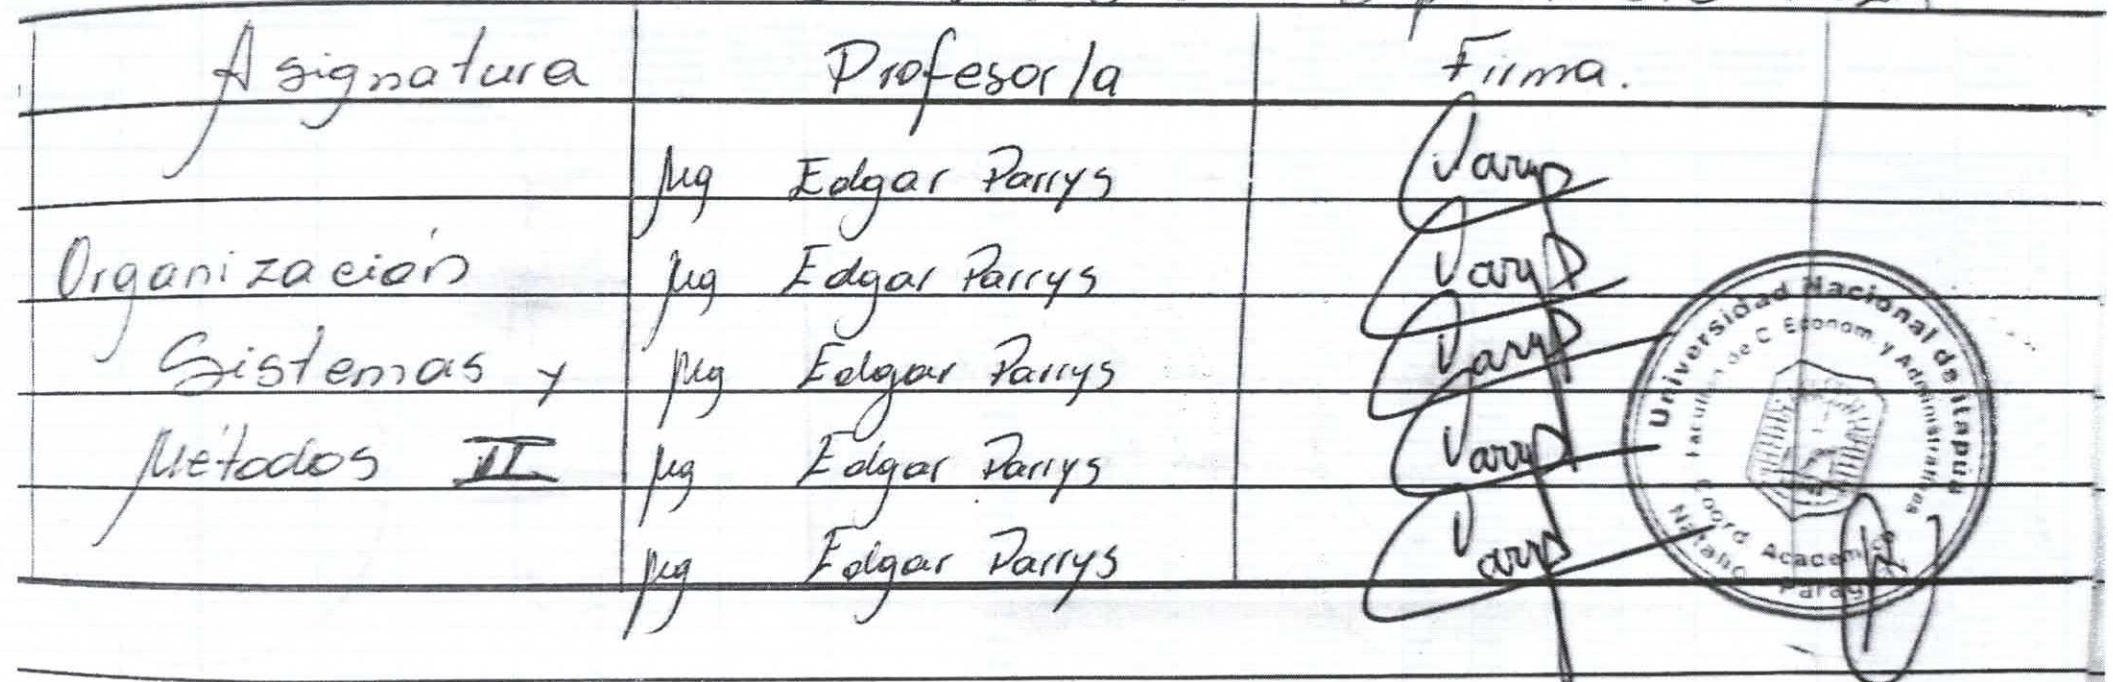 Asignatura Profesor/a Firma.
Mg Edgar Parrys
Organización Mg Edgar Parrys
Sistemas y Mg Edgar Parrys
Métodos II Mg Edgar Parrys
Mg Edgar Parrys
Universidad Nacional de Itapúa
Facultad de C Econom y Administrativas
Coord Academica
Natalio Paraguay